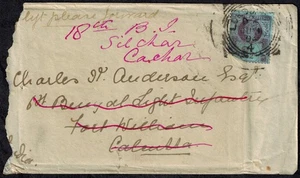 please forward
18th B. I.
Silchar
Cachar
Charles W. Anderson Esqr
Bengal Light Infantry
Fort William
Calcutta